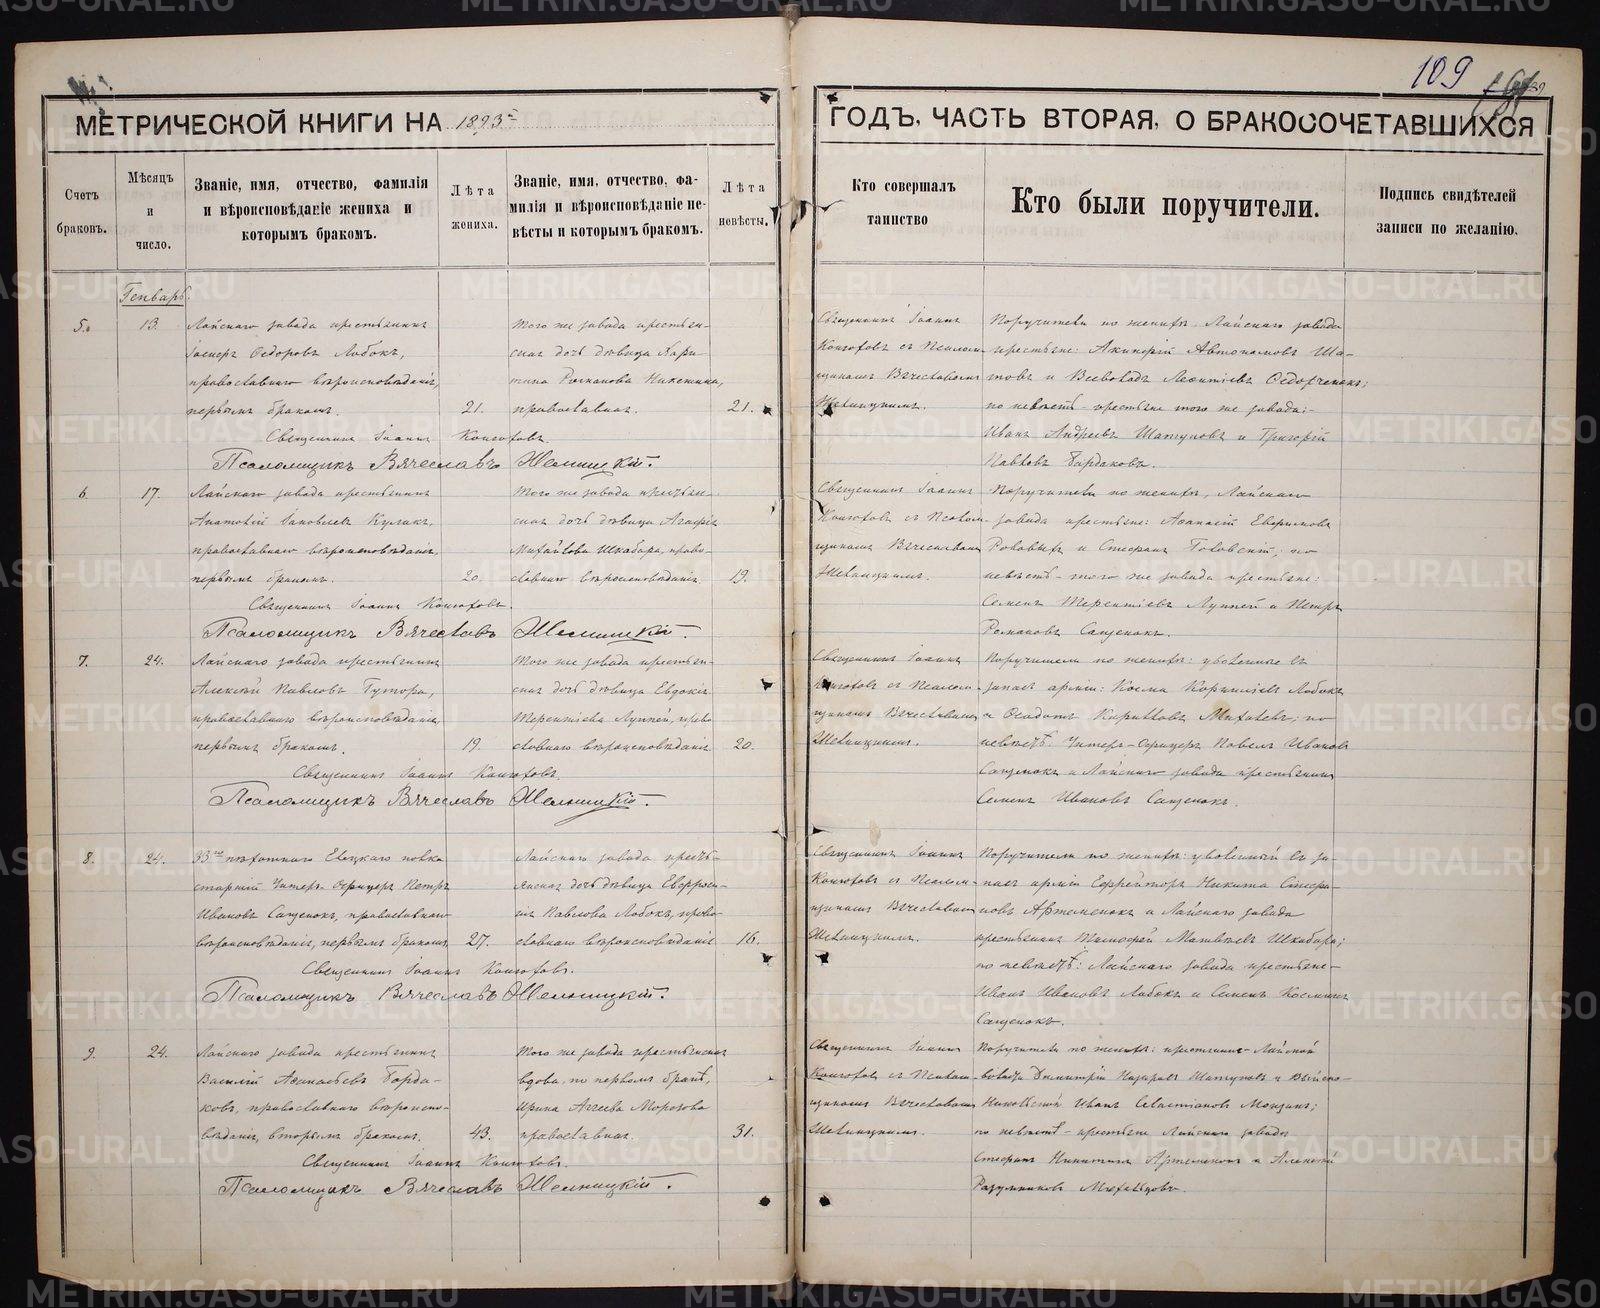 109
МЕТРИЧЕСКОЙ КНИГИ НА 1893 ГОДЪ, ЧАСТЬ ВТОРАЯ, О БРАКОСОЧЕТАВШИХСЯ
Счетъ браковъ.
Мѣсяцъ и число.
Званіе, имя, отчество, фамилія
и вѣроисповѣданіе жениха и
которымъ бракомъ.
Лѣта
жениха.
Званіе, имя, отчество, фа-
милія и вѣроисповѣданіе не-
вѣсты и которымъ бракомъ.
Лѣта
невѣсты.
Кто совершалъ
таинство
Кто были поручители.
Подпись свидѣтелей
записи по желанію.
Генварь.
5.
13.
Лайскаго завода крестьянинъ
Ѳедоровъ Лобокъ,
православнаго вѣроисповѣданія,
первымъ бракомъ.
21.
Того же завода крестьян-
ская дочь дѣвица Хари-
тина Романова Никитина,
православная.
21.
Священникъ Іоаннъ
Конюховъ съ Псалом-
щикомъ Вячеславомъ
Желницкимъ.
Поручители по женихѣ: Лайскаго завода
крестьяне: Автономовъ Ша-
товъ и Всеволодъ Леонтіевъ Ѳедорченокъ;
по невѣстѣ - крестьяне того же завода:
Иванъ Андреевъ Шатуновъ и Григорій
Павловъ Бардаковъ.
Священникъ Іоаннъ Конюховъ.
Псаломщикъ Вячеславъ Желницкій.
6.
17.
Лайскаго завода крестьянинъ
Анатолій Яковлевъ Кулакъ,
православнаго вѣроисповѣданія,
первымъ бракомъ.
20.
Того же завода крестьян-
ская дочь дѣвица Агафія
Михайлова Шкабара, право-
славнаго вѣроисповѣданія.
19.
Священникъ Іоаннъ
Конюховъ съ Псалом-
щикомъ Вячеславомъ
Желницкимъ.
Поручители по женихѣ, Лайскаго
завода крестьяне: Аѳанасій Евфимовъ
и Стефанъ по
невѣстѣ - того же завода крестьяне:
Семенъ Терентіевъ Луппей и Петръ
Романовъ Сащенокъ.
Священникъ Іоаннъ Конюховъ.
Псаломщикъ Вячеславъ Желницкій.
7.
24.
Лайскаго завода крестьянинъ
Алексѣй Павловъ Гутора,
православнаго вѣроисповѣданія,
первымъ бракомъ.
19.
Того же завода крестьян-
ская дочь дѣвица Евдокія
Терентіева Луппей, право-
славнаго вѣроисповѣданія
20.
Священникъ Іоаннъ
Конюховъ съ Псалом-
щикомъ Вячеславомъ
Желницкимъ.
Поручители по женихѣ: уволенные въ
запасъ арміи: Косма Корниліевъ Лобокъ
и Кирилловъ Михалевъ; по
невѣстѣ: Унтеръ-Офицеръ Павелъ Ивановъ
Сащенокъ и Лайскаго завода крестьянинъ
Семенъ Ивановъ Сащенокъ.
Священникъ Іоаннъ Конюховъ.
Псаломщикъ Вячеславъ Желницкій.
8.
24.
33го пѣхотнаго Елецкаго полка
старшій Унтеръ-Офицеръ Петръ
Ивановъ Сащенокъ, православнаго
вѣроисповѣданія, первымъ бракомъ
27.
Лайскаго завода кресть-
янская дочь дѣвица Евфроси-
нія Павлова Лобокъ, право-
славнаго вѣроисповѣданія
16.
Священникъ Іоаннъ
Конюховъ съ Псалом-
щикомъ Вячеславомъ
Желницкимъ.
Поручители по женихѣ: уволенный въ за-
пасъ арміи Ефрейторъ Никита Стефа-
новъ Артеменокъ и Лайскаго завода
крестьянинъ Тимофей Матвѣевъ Шкабара;
по невѣстѣ: Лайскаго завода крестьяне -
Иванъ Ивановъ Лобокъ и Семенъ Косминъ
Сащенокъ.
Священникъ Іоаннъ Конюховъ.
Псаломщикъ Вячеславъ Желницкій.
9.
24.
Лайскаго завода крестьянинъ
Василій Аѳанасьевъ Борда-
ковъ, православнаго вѣроиспо-
вѣданія, вторымъ бракомъ.
43.
Того же завода крестьянская
вдова, по первомъ бракѣ,
Ирина Агѣева Морозова
православная.
31.
Священникъ Іоаннъ
Конюховъ съ Псалом-
щикомъ Вячеславомъ
Желницкимъ.
Поручители по женихѣ: крестьяне - Лайской
волости Димитрій Назаровъ Шатуновъ и Выйско-
Николаской Иванъ Севастіановъ Мокзинъ;
по невѣстѣ - крестьяне Лайскаго завода
Стефанъ Никитинъ Артеменокъ и Алексѣй
Разумниковъ
Священникъ Іоаннъ Конюховъ.
Псаломщикъ Вячеславъ Желницкій.
METRIKI.GASO-URAL.RU